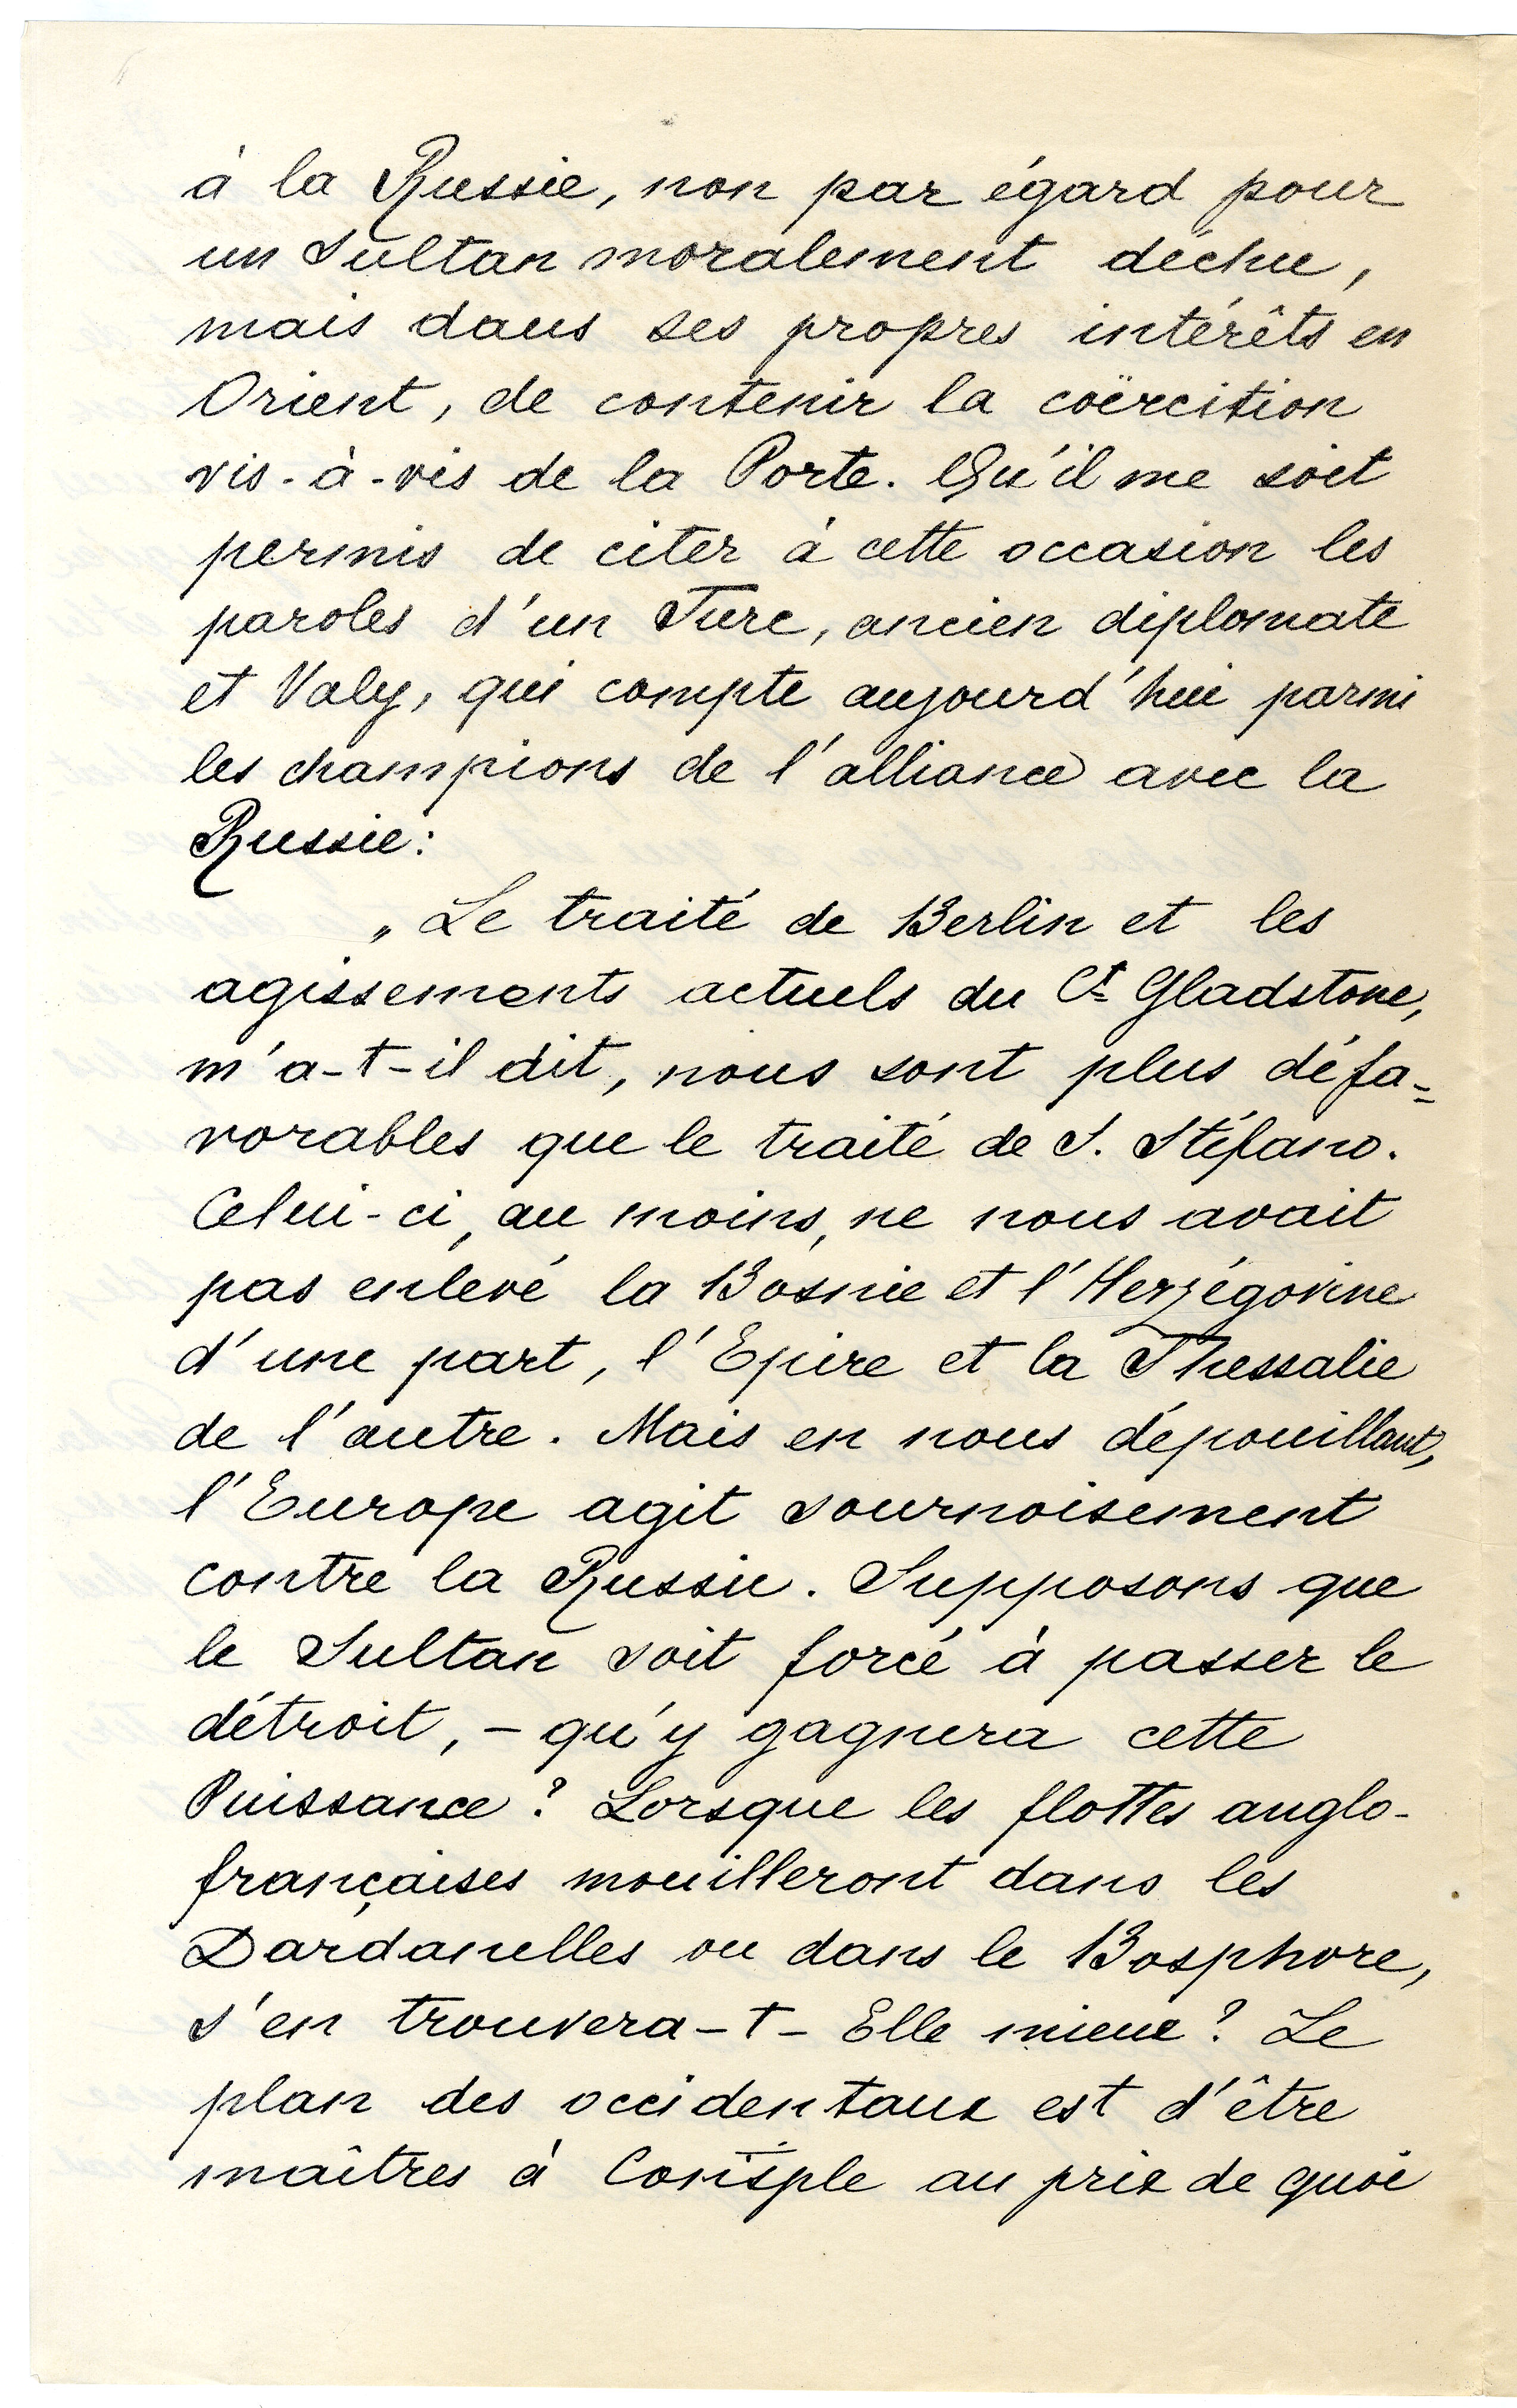 à la Russie, non par égard pour
un Sultan moralement déchu,
mais dans ses propres intérêts en
Orient, de contenir la coërcition
vis-à-vis de la Porte. Qu'il me soit
permis de citer à cette occasion les
paroles d'un Turc, ancien diplomate
et Valy, qui compte aujourd'hui parmi
les champions de l'alliance avec la
Russie:
„Le traité de Berlin et les
agissements actuels du Ct Gladstone,
m'a-t-il dit, nous sont plus défa-
vorables que le traité de S. Stéfano.
Celui-ci, au moins, ne nous avait
pas enlevé la Bosnie et l'Herzégovine
d'une part, l'Epire et la Thessalie
de l'autre. Mais en nous dépouillant,
l'Europe agit sournoisement
contre la Russie. Supposons que
le Sultan soit forcé à passer le
détroit, – qu'y gagnera cette
Puissance? Lorsque les flottes anglo-
françaises mouilleront dans les
Dardanelles ou dans le Bosphore,
s'en trouvera-t-Elle mieux? Le
plan des occidentaux est d'être
maîtres à Constple au prix de quoi